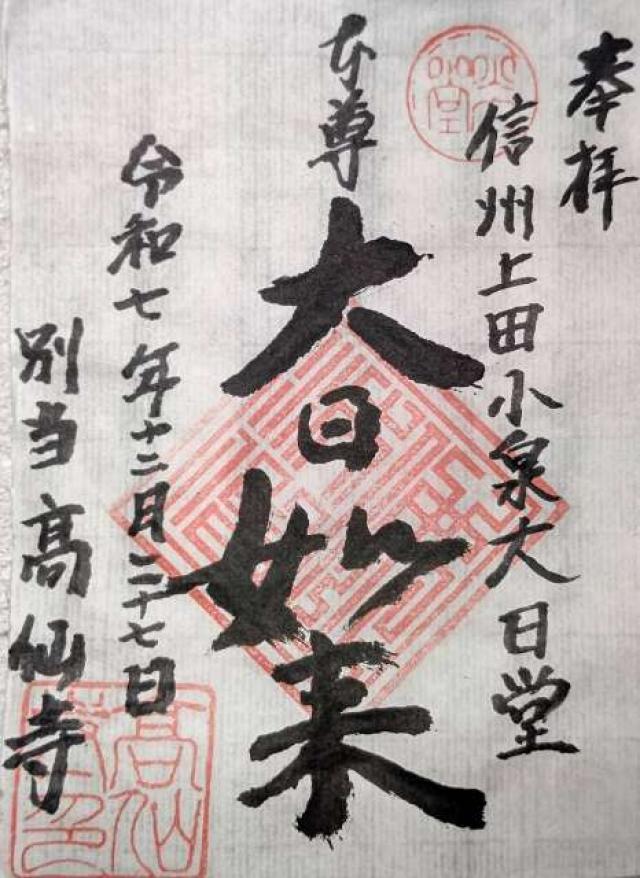 奉拝
信州上田小泉大日堂
本尊
大日如来
令和七年十二月二十七日
別当高仙寺